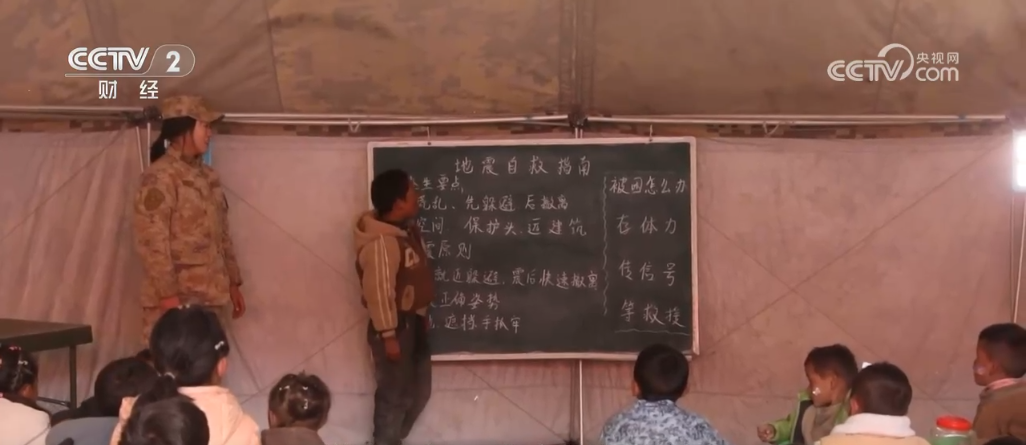 CCTV 2
财经
央视网
CCTV.com
地震自救指南
生要点
慌乱、先躲避 后撤离
空间 保护头、远建筑
震原则
就近躲避,震后快速撤离
正确姿势
遮挡手抓牢
被困怎么办
存体力
传信号
等救援